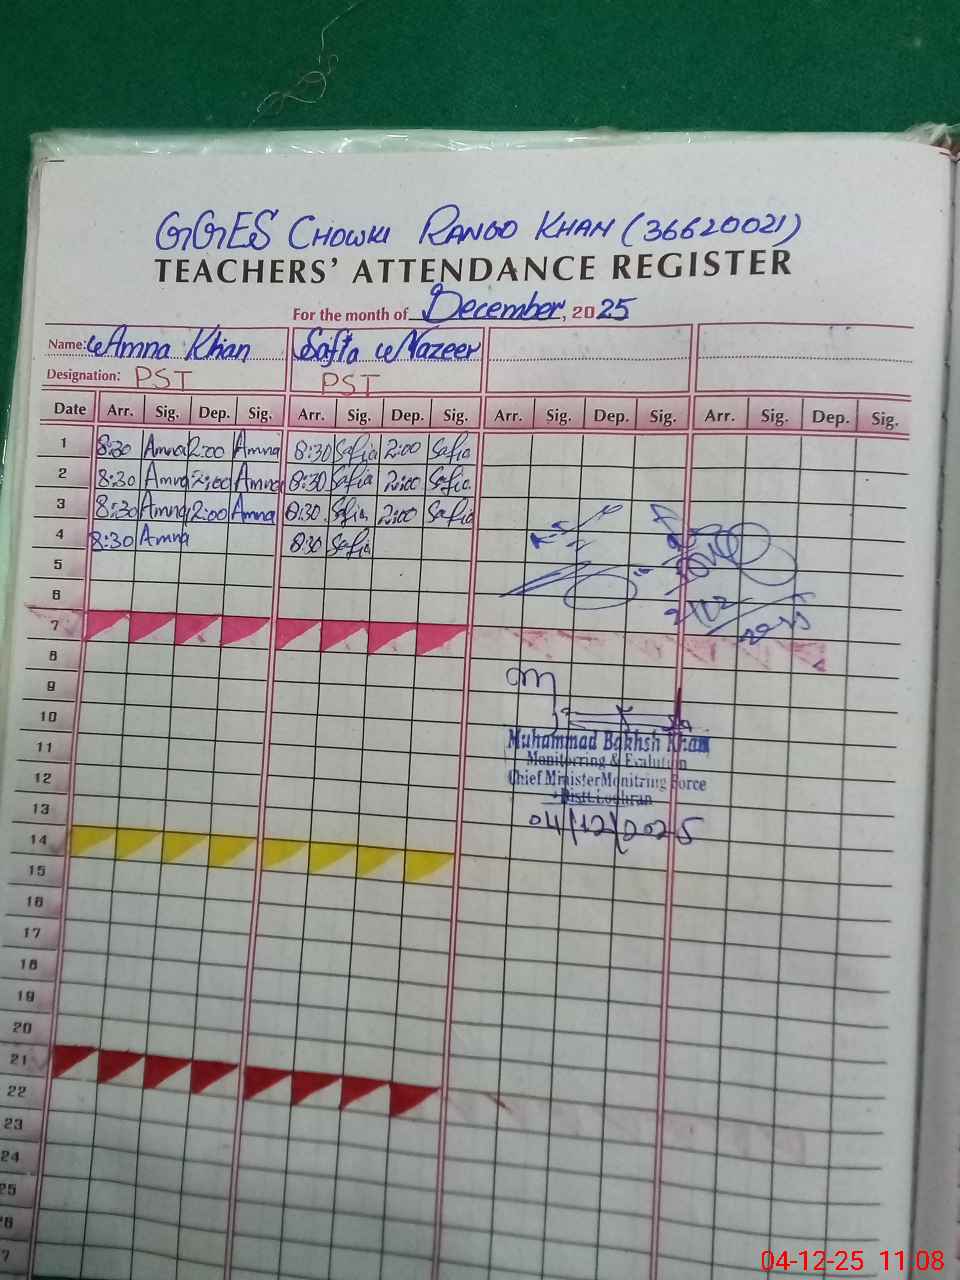 GGES CHOWKI RANGO KHAN (36620021)
TEACHERS' ATTENDANCE REGISTER
For the month of December, 2025
Name: Amna Khan Safia Nazeer
Designation: PST PST
Date Arr. Sig. Dep. Sig. Arr. Sig. Dep. Sig. Arr. Sig. Dep. Sig. Arr. Sig. Dep. Sig.
1 8:30 Amna 2:00 Amna 8:30 Safia 2:00 Safia
2 8:30 Amna 2:00 Amna 8:30 Safia 2:00 Safia
3 8:30 Amna 2:00 Amna 8:30 Safia 2:00 Safia
4 8:30 Amna 8:30 Safia
5
6
7
8
9
10
11
Muhammad Bakhsh Khan
Monitorring & Evalution
12
Chief MinisterMonitring Force
Distt.Lodhran
13
04/12/2025
14
15
16
17
18
19
20
21
22
23
24
25
26
27
04-12-25 11:08